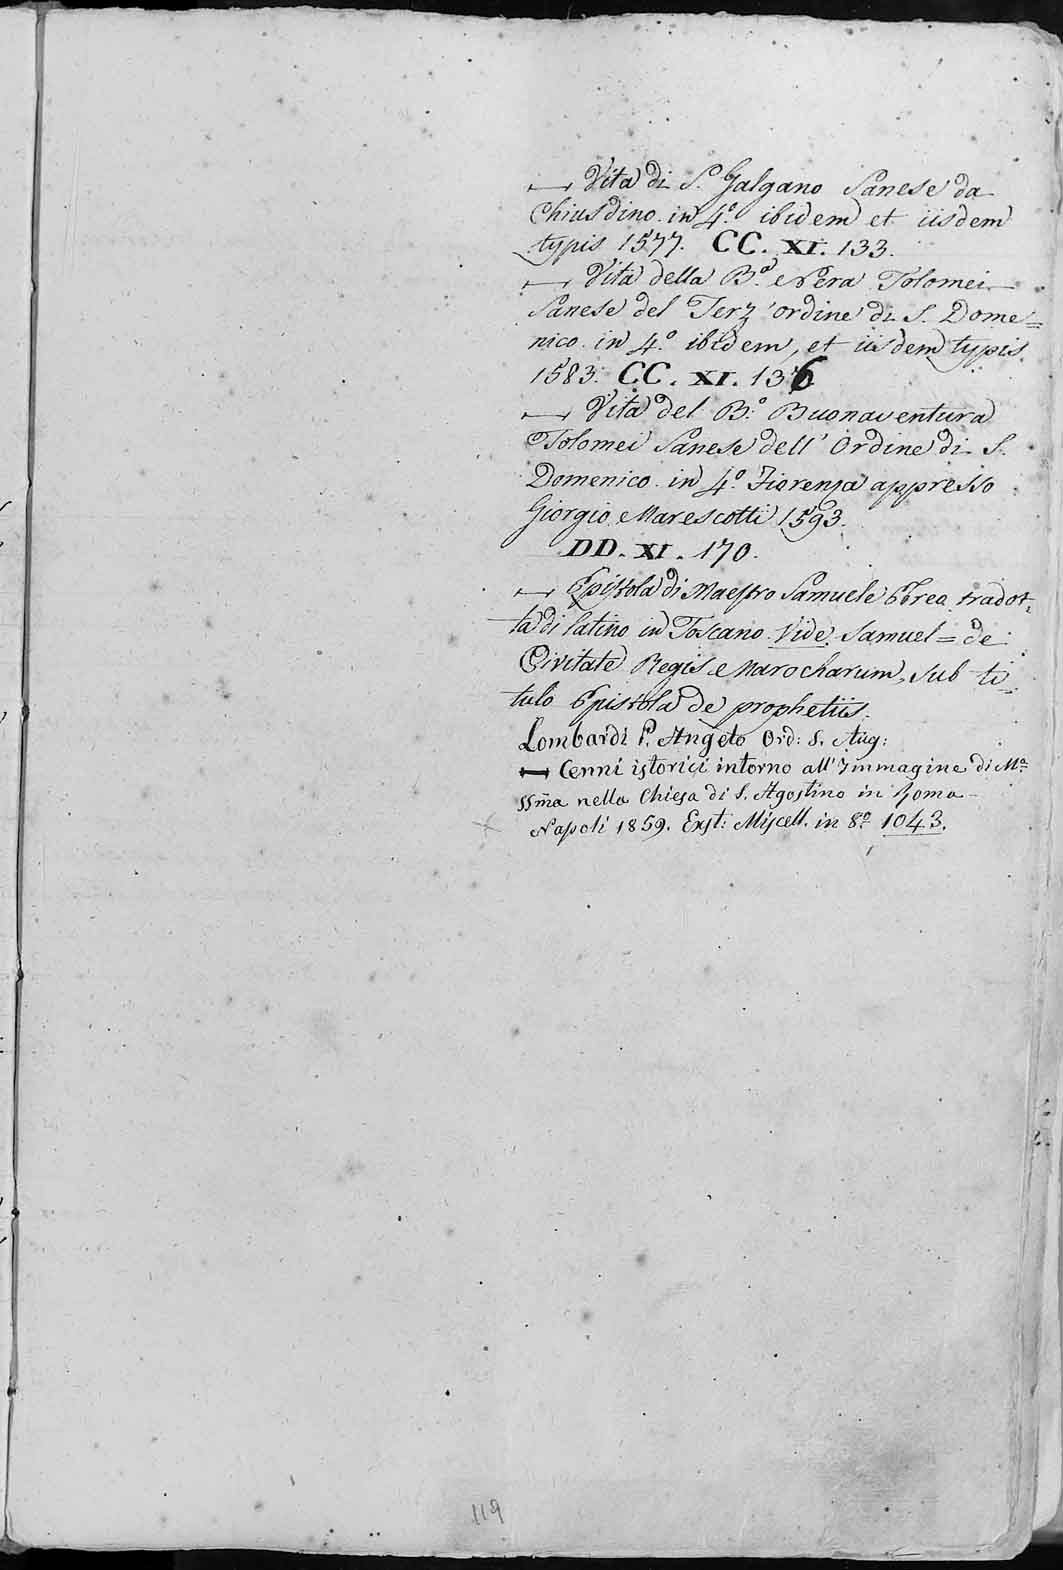 — Vita di S.º Galgano Sanese da
Chiusdino. in 4.º ibidem et iisdem
typis 1577. CC. XI. 133.
— Vita della B.ª Nera Tolomei
Sanese del Terz' ordine di S. Dome=
nico in 4.º ibidem, et iisdem typis
1583. CC. XI. 136
— Vita del B.º Buonaventura
Tolomei Sanese dell' Ordine di S.
Domenico in 4.º Fiorenza appresso
Giorgio Marescotti 1593.
DD. XI. 170.
— Epistola di Maestro Samuele Ebreo tradot:
ta di latino in Toscano. Vide. Samuel = de
Civitate Regis Marocharum, sub ti
tulo Epistola de prophetiis.
Lombardi P. Angelo Ord: S. Aug:
— Cenni istorici intorno all'Immagine di Mª
SSm̃a nella Chiesa di S. Agostino in Roma
Napoli 1859. Exst: Miscell. in 8.º 1043.
119